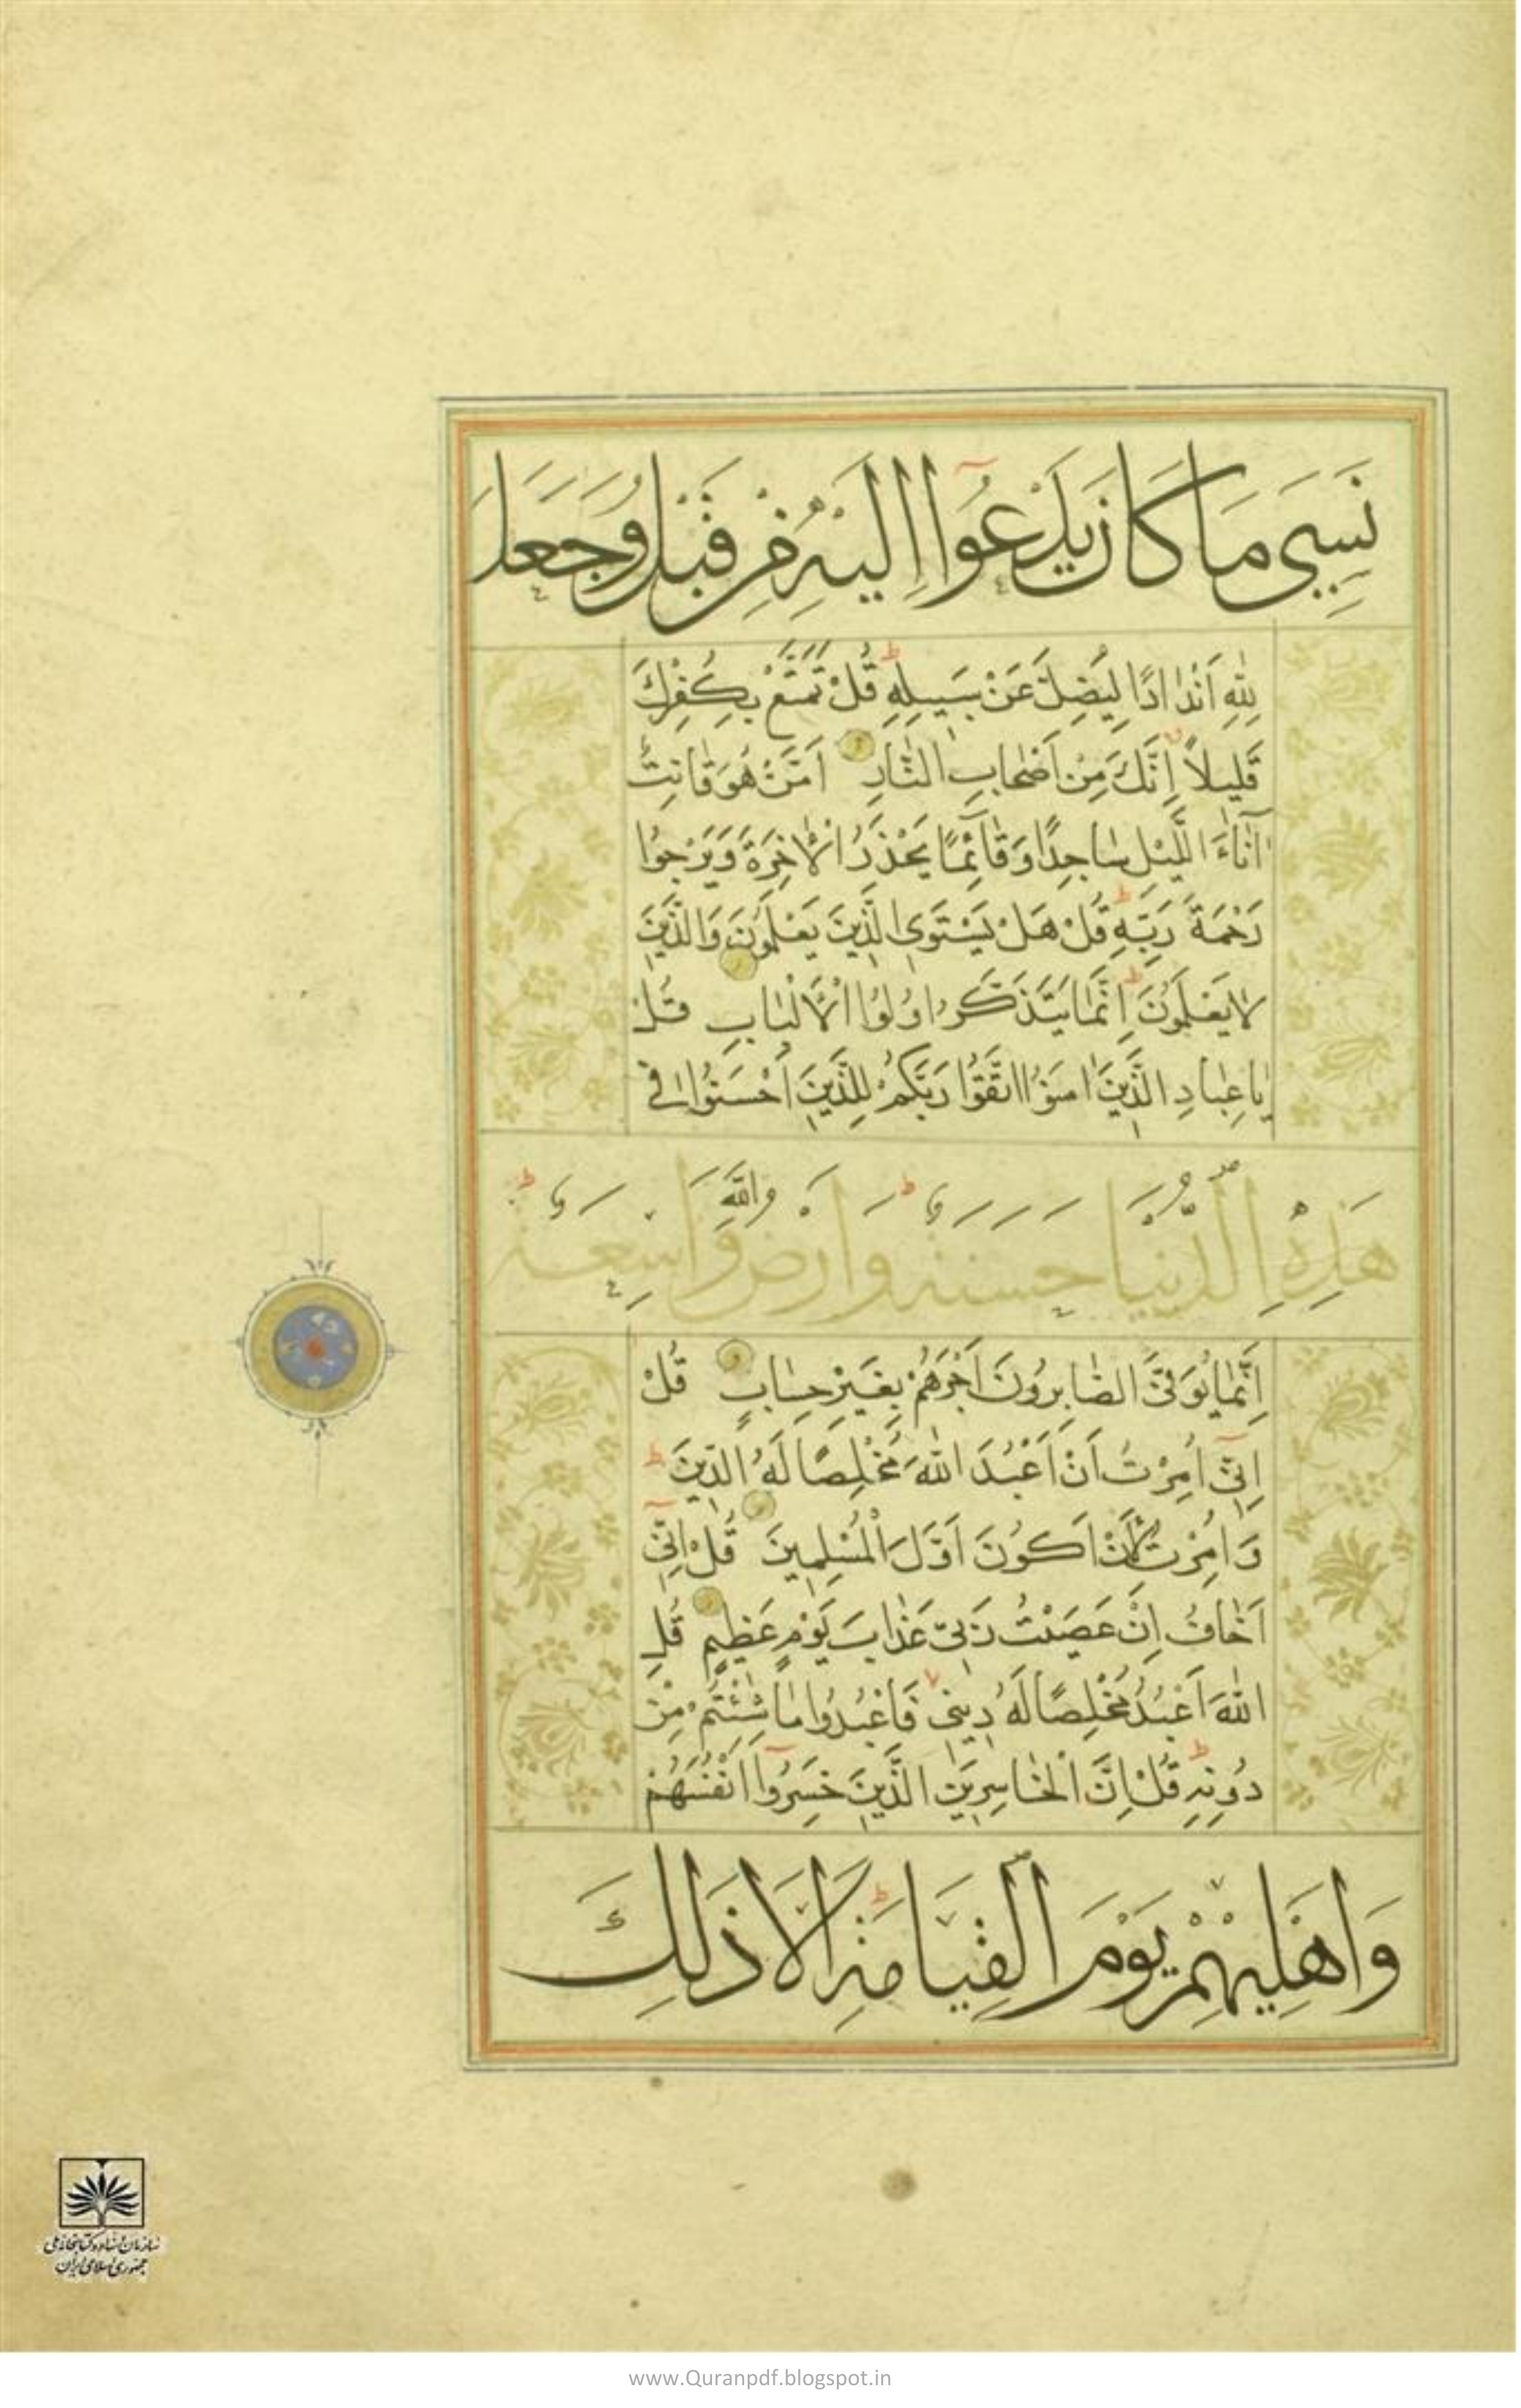 نَسِىَ مَا كَانَ يَدْعُوا اِلَيْهِ مِنْ قَبْلُ وَجَعَلَ
لِلّٰهِ اَنْدَادًا لِيُضِلَّ عَنْ سَبِيلِهِ قُلْ تَمَتَّعْ بِكُفْرِكَ
قَلِيلاً اِنَّكَ مِنْ اَصْحَابِ النَّارِ اَمَّنْ هُوَ قَانِتٌ
آنَاءَ اللَّيْلِ سَاجِدًا وَقَائِمًا يَحْذَرُ الْاٰخِرَةَ وَيَرْجُوا
رَحْمَةَ رَبِّهِ قُلْ هَلْ يَسْتَوِى الَّذِينَ يَعْلَمُونَ وَالَّذِينَ
لَا يَعْلَمُونَ اِنَّمَا يَتَذَكَّرُ اُولُوا الْاَلْبَابِ قُلْ
يَا عِبَادِ الَّذِينَ اٰمَنُوا اتَّقُوا رَبَّكُمْ لِلَّذِينَ اَحْسَنُوا فِى
هٰذِهِ الدُّنْيَا حَسَنَةٌ وَاَرْضُ اللّٰهِ وَاسِعَةٌ
اِنَّمَا يُوَفَّى الصَّابِرُونَ اَجْرَهُمْ بِغَيْرِ حِسَابٍ قُلْ
اِنِّى اُمِرْتُ اَنْ اَعْبُدَ اللّٰهَ مُخْلِصًا لَهُ الدِّينَ
وَاُمِرْتُ لِاَنْ اَكُونَ اَوَّلَ الْمُسْلِمِينَ قُلْ اِنِّى
اَخَافُ اِنْ عَصَيْتُ رَبِّى عَذَابَ يَوْمٍ عَظِيمٍ قُلِ
اللّٰهَ اَعْبُدُ مُخْلِصًا لَهُ دِينِى فَاعْبُدُوا مَا شِئْتُمْ مِنْ
دُونِهِ قُلْ اِنَّ الْخَاسِرِينَ الَّذِينَ خَسِرُوا اَنْفُسَهُمْ
وَاَهْلِيهِمْ يَوْمَ الْقِيَامَةِ اَلَا ذٰلِكَ
سازمان اسناد و کتابخانه ملی
جمهوری اسلامی ایران
www.Quranpdf.blogspot.in